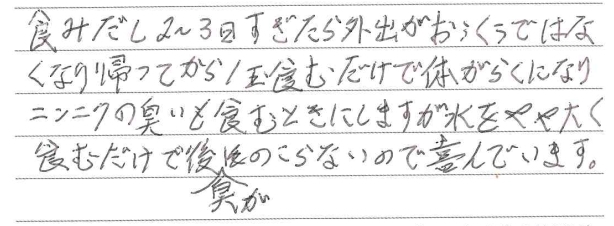 食みだし2～3日すぎたら外出がおっくうではな
くなり帰ってから1玉食むだけで体がらくになり
ニンニクの臭いも食むときにしますが水をやや大く
食むだけで後はのこらないので喜んでいます。
臭が